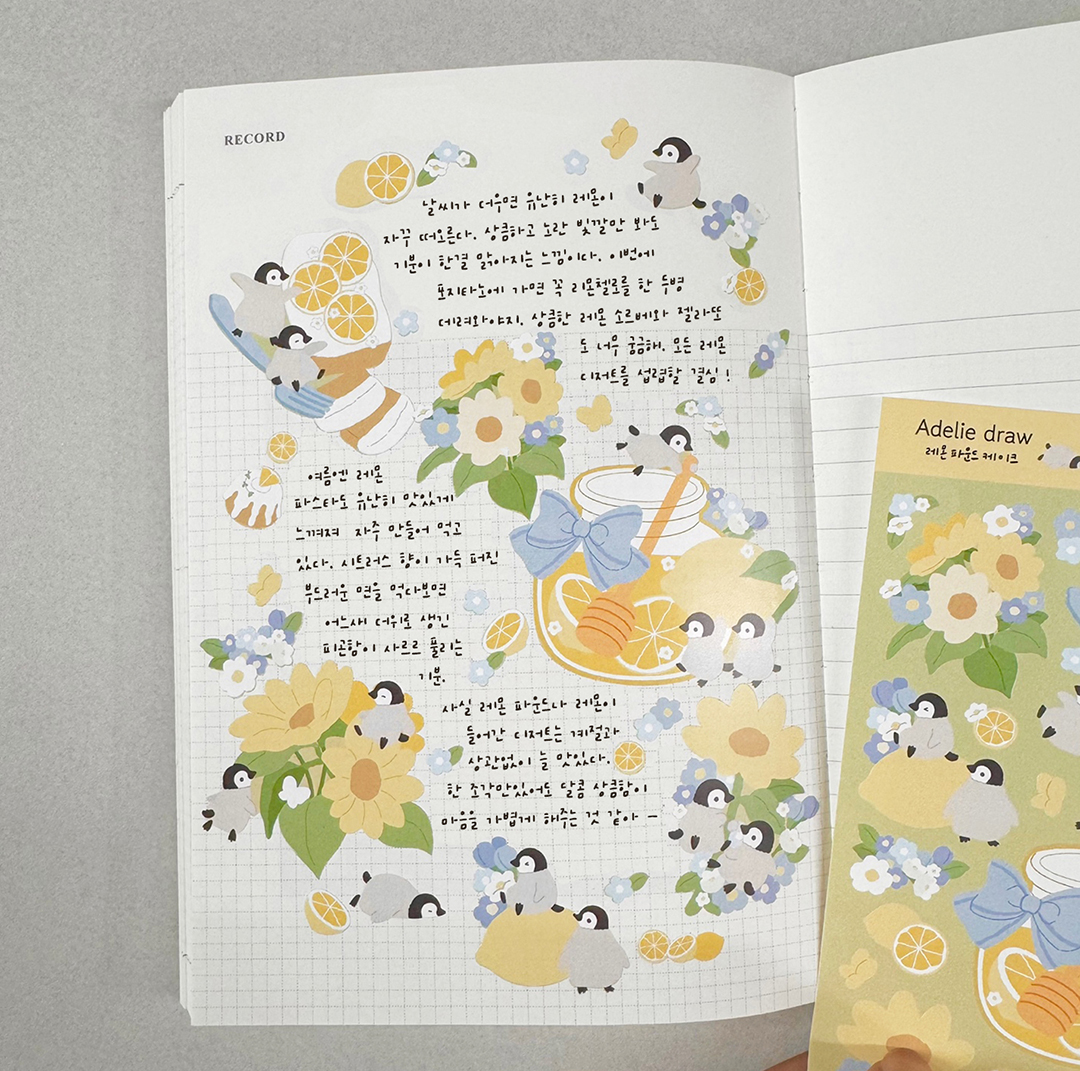 RECORD
날씨가 더우면 유난히 레몬이
자꾸 떠오른다. 상큼하고 노란 빛깔만 봐도
기분이 한결 맑아지는 느낌이다. 이번에
포지타노에 가면 꼭 리몬첼로를 한 두병
데려와야지. 상큼한 레몬 소르베와 젤라또
도 너무 궁금해. 모든 레몬
디저트를 섭렵할 결심!
여름엔 레몬
파스타도 유난히 맛있게
느껴져 자주 만들어 먹고
있다. 시트러스 향이 가득 퍼진
부드러운 면을 먹다보면
어느새 더위로 생긴
피곤함이 사르르 풀리는
기분.
사실 레몬 파운드나 레몬이
들어간 디저트는 계절과
상관없이 늘 맛있다.
한 조각만있어도 달콤 상큼함이
마음을 가볍게 해주는 것 같아 -
Adelie draw
레몬 파운드 케이크